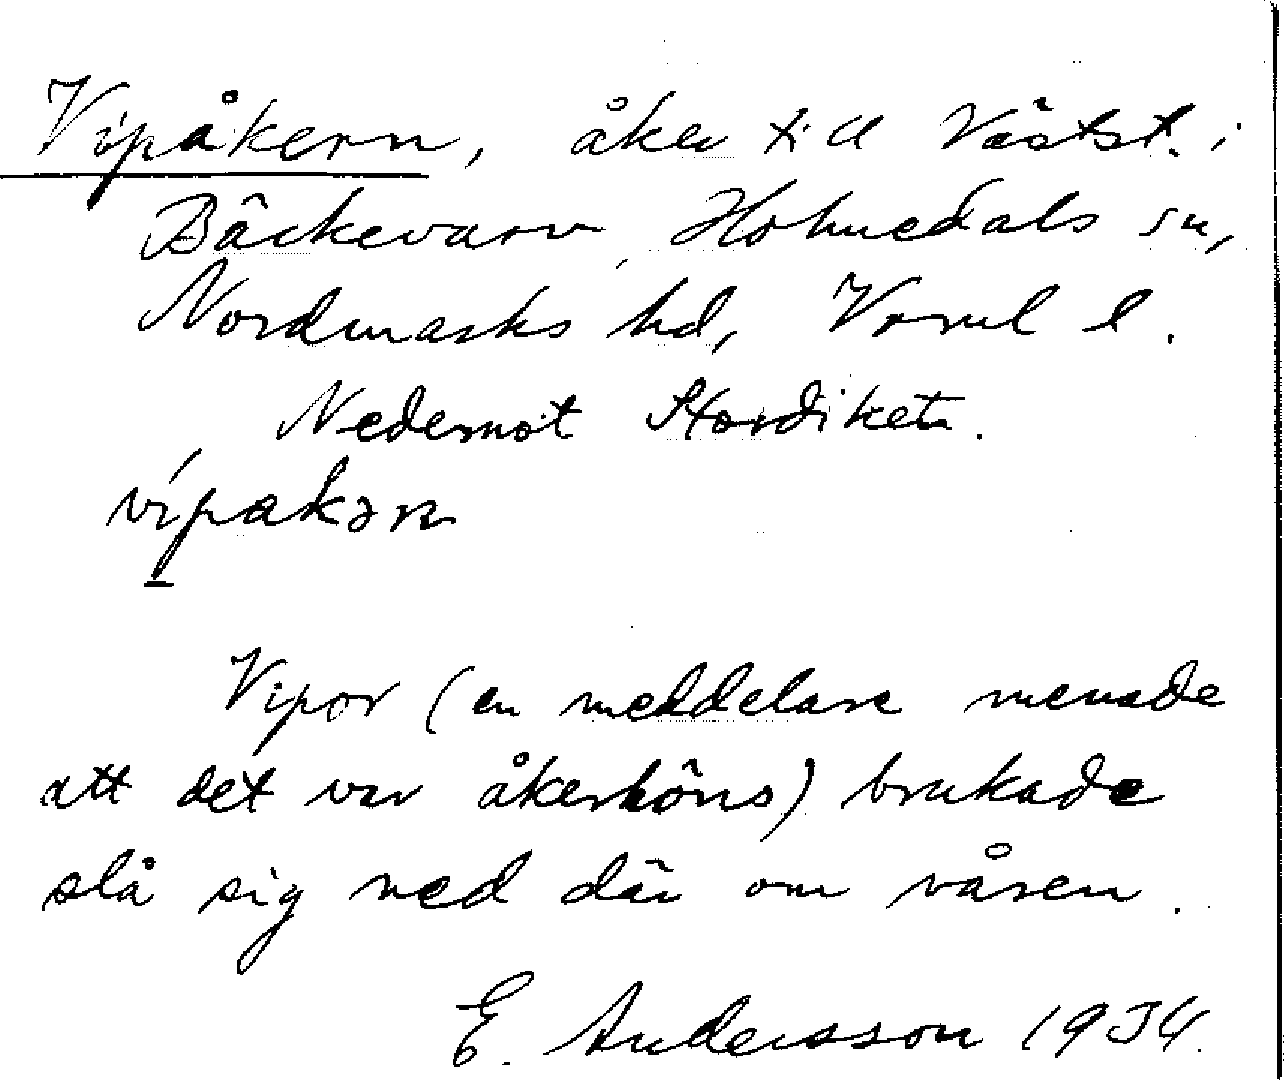 Vipåkern, åker till Västst. i
Bäckevarv, Holmedals sn,
Nordmarks hd, Vrml l.
Nedemot Stordiket.
vípakər
Vipor (en meddelare menade
att det var åkerhöns) brukade
slå sig ned där om våren.
E. Andersson 1934.